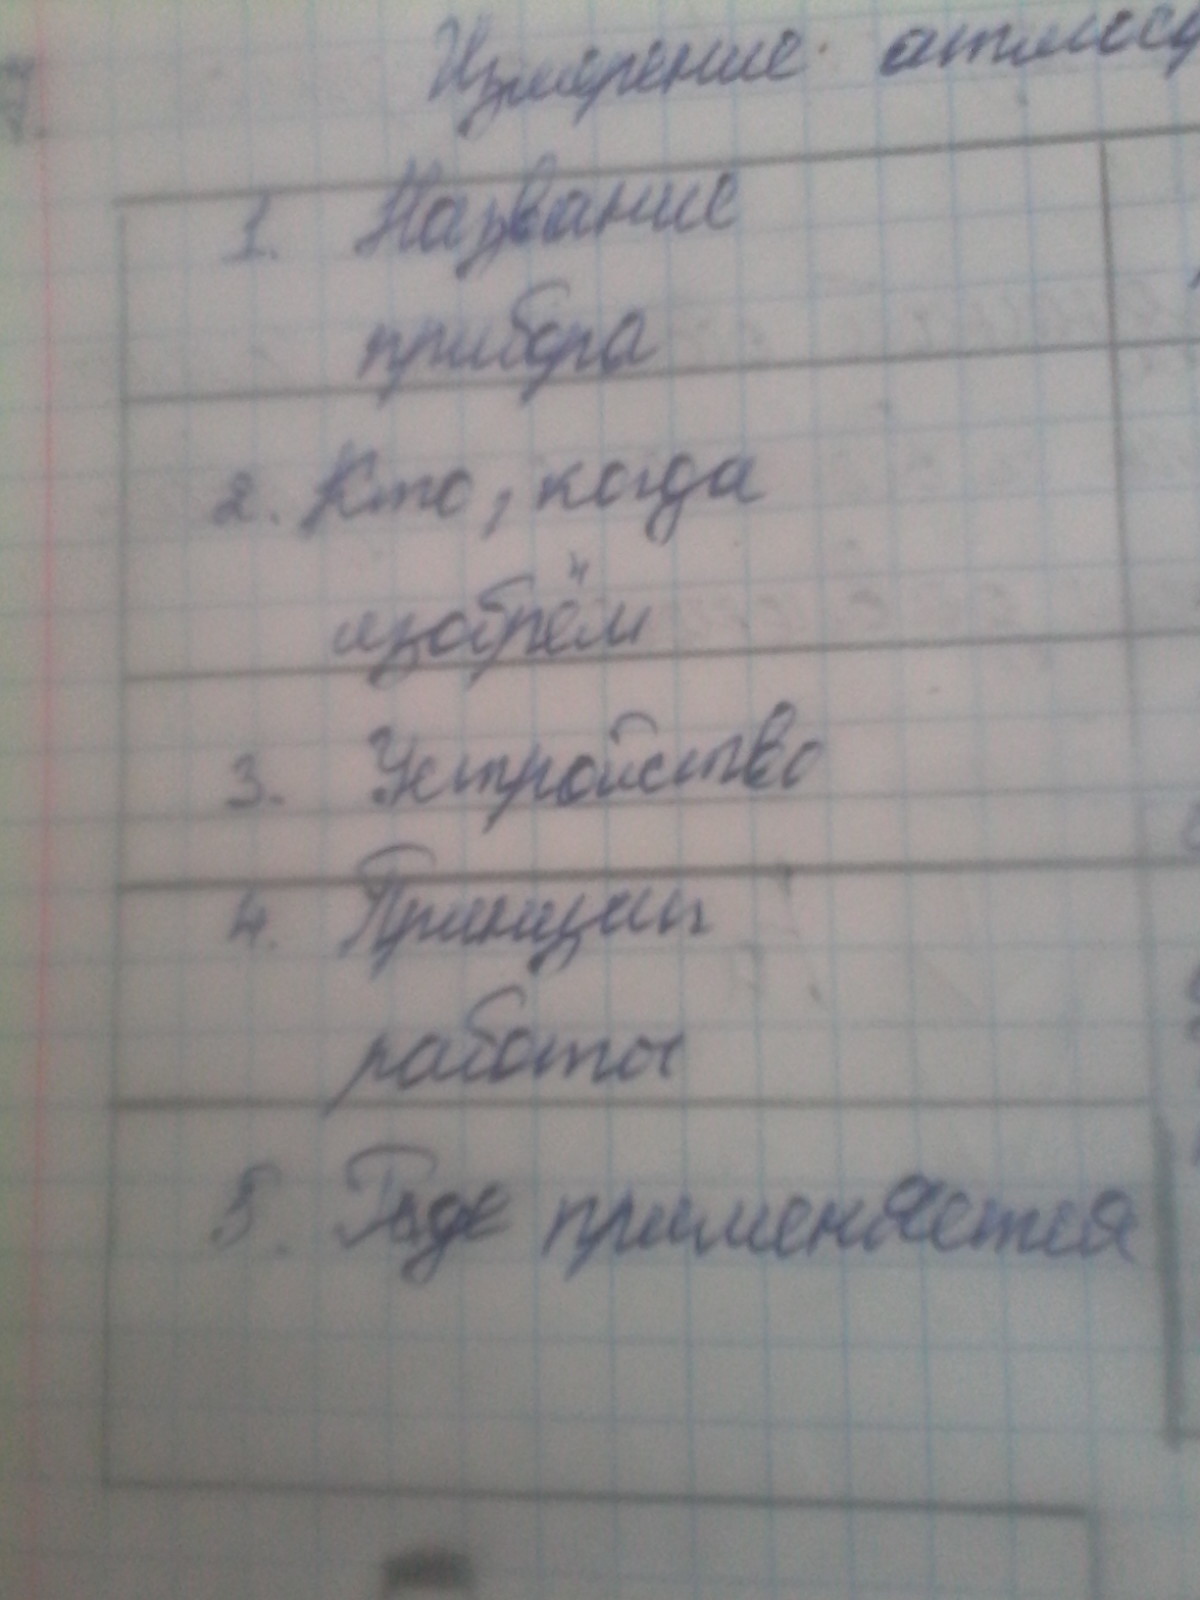 Измерение атмосф
1. Название
прибора
2. Кто, когда
изобрёл
3. Устройство
4. Принцип
работы
5. Где применяется